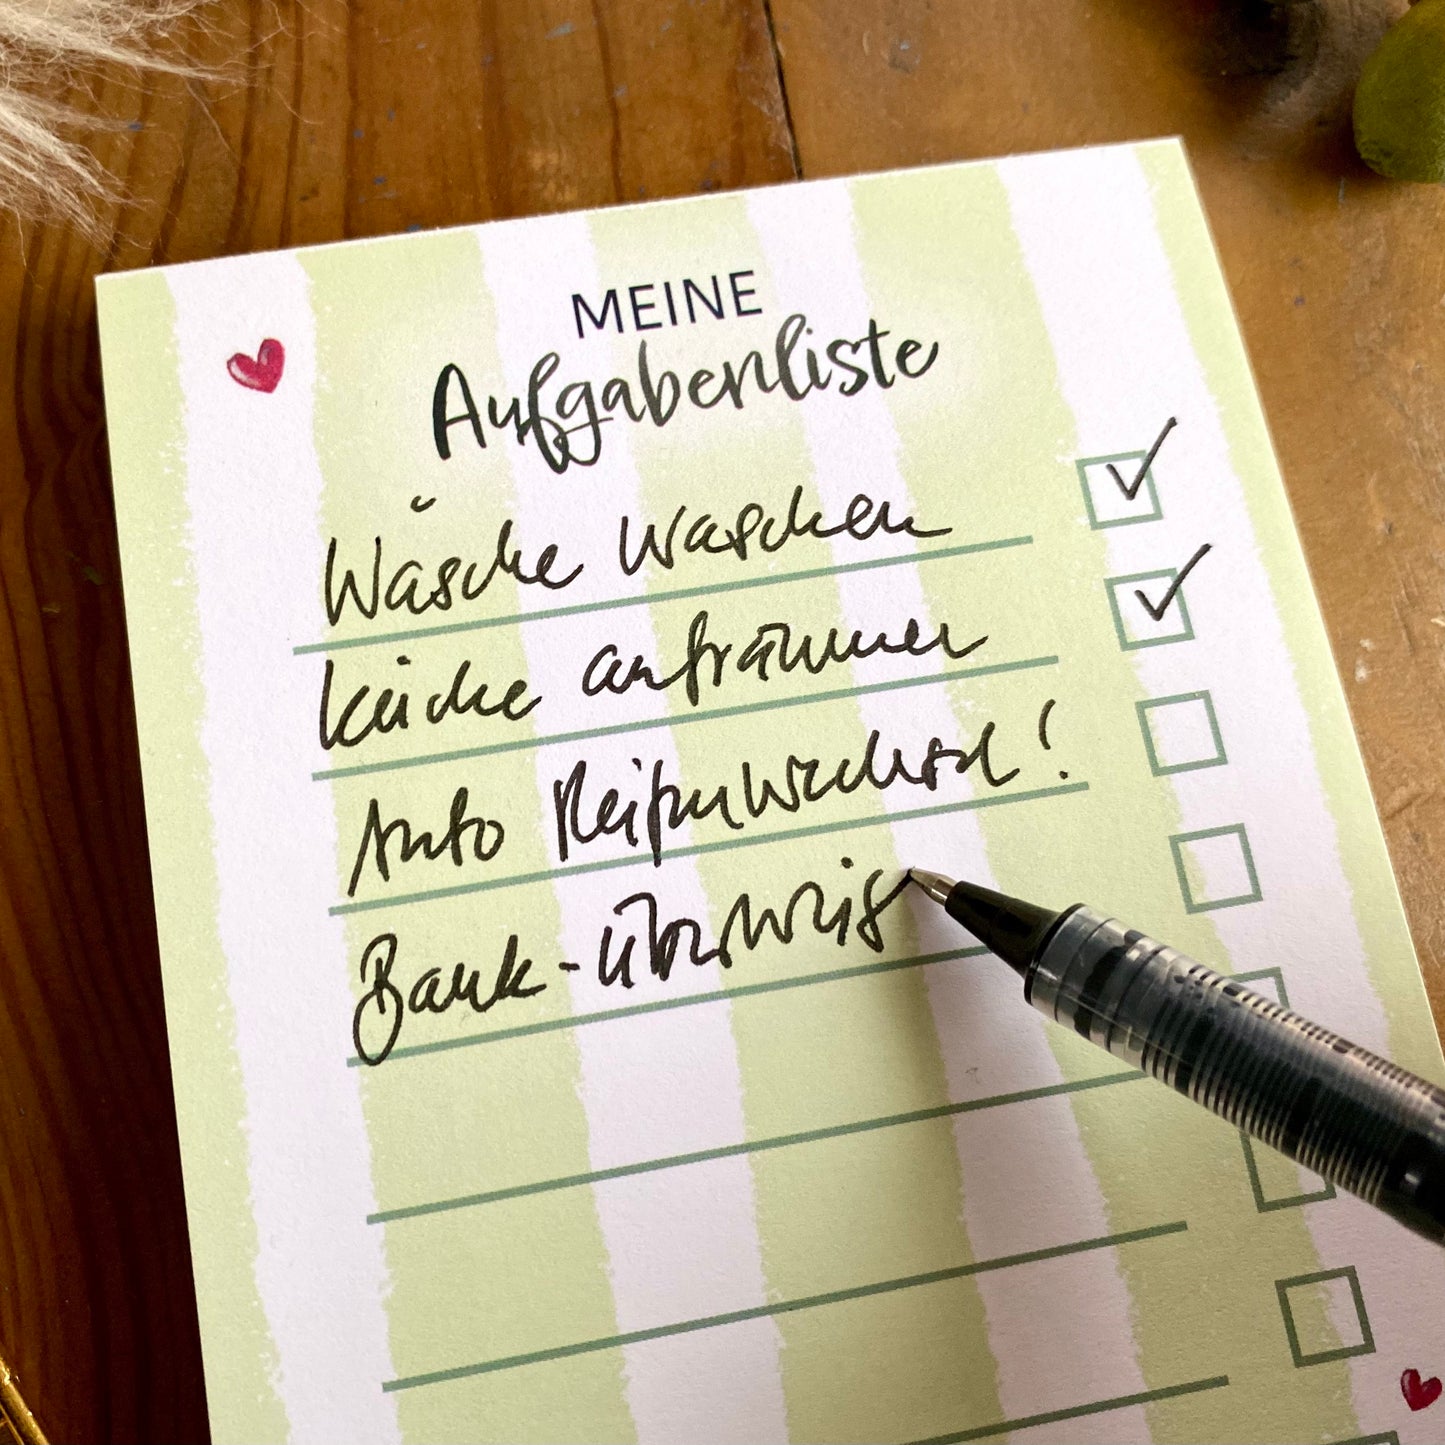 MEINE
Aufgabenliste
Wäsche waschen
Küche aufräumen
Auto Reifenwechsel!
Bank-Überweis